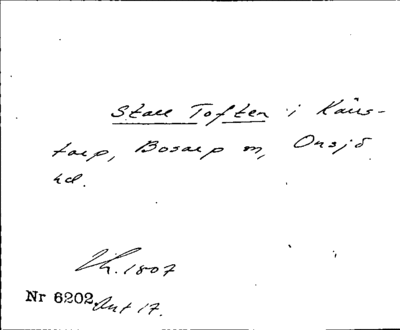 Stall Toften i Käns-
torp, Bosarp sn, Onsjö
hd.
Th. 1807
Nr 6202. Ant 17.